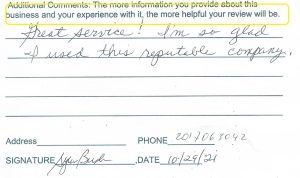 Additional Comments: The more information you provide about this
business and your experience with it, the more helpful your review will be.
Great service! I'm so glad
I used this reputable company.
Address
PHONE 2017063042
SIGNATURE DATE 10/29/21